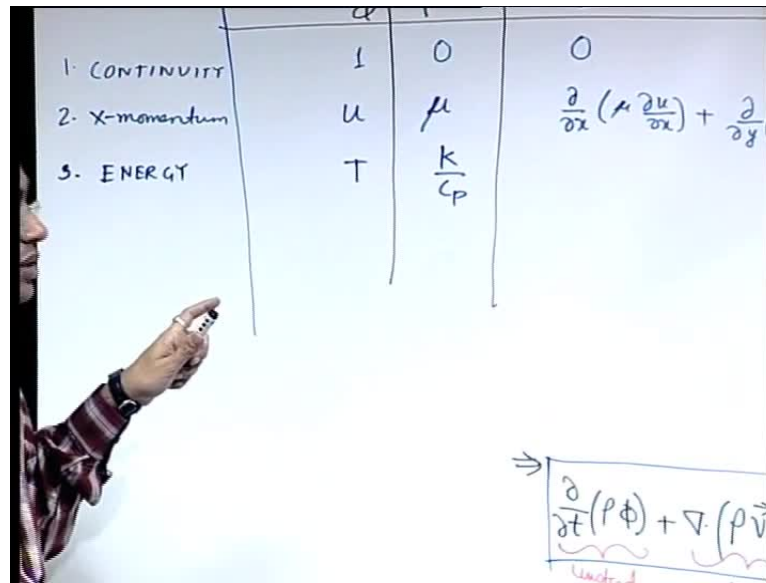 φ
1. CONTINUITY 1 0 0
2. X-momentum u μ ∂/∂x (μ ∂u/∂x) + ∂/∂y
3. ENERGY T K/Cp
⇒ ∂/∂t (ρφ) + ∇. (ρV⃗